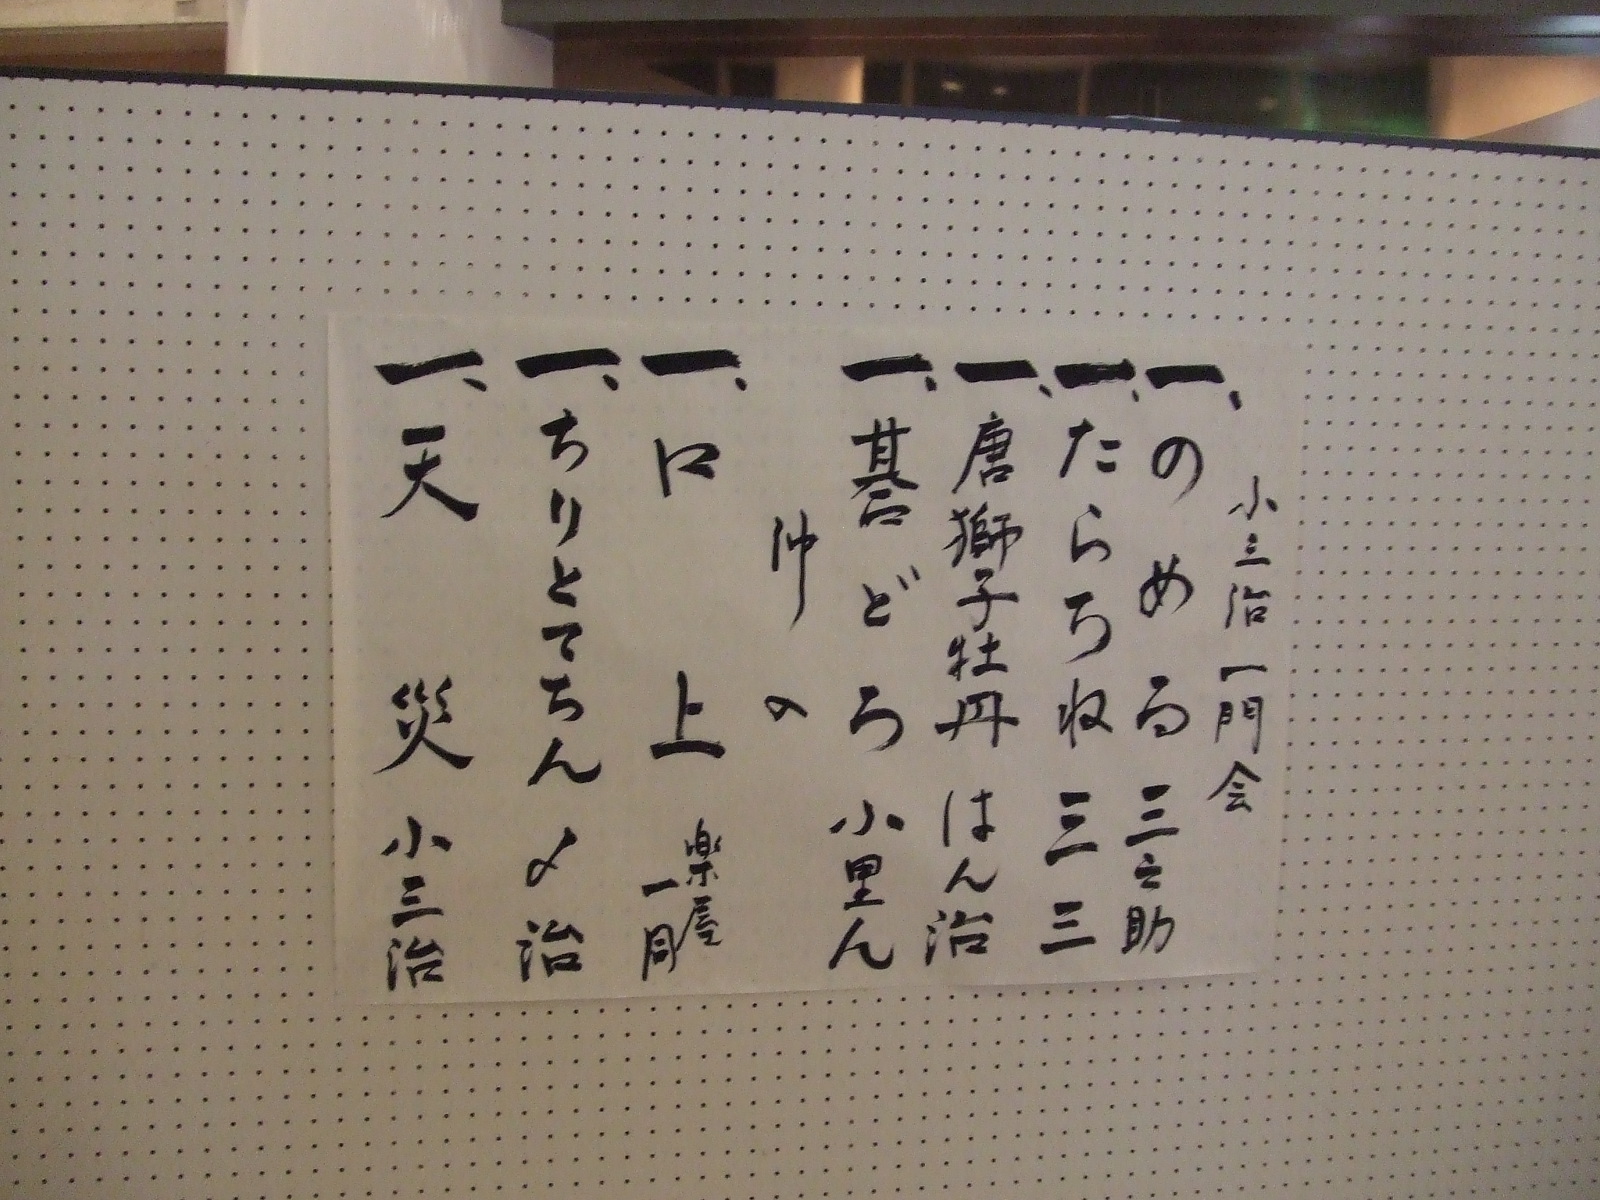 小三治一門会
一、のめる 三之助
一、たらちね 三三
一、唐獅子牡丹 はん治
一、碁どろ 小里ん
仲入
一、口上 楽屋一同
一、ちりとてちん 〆治
一、天災 小三治